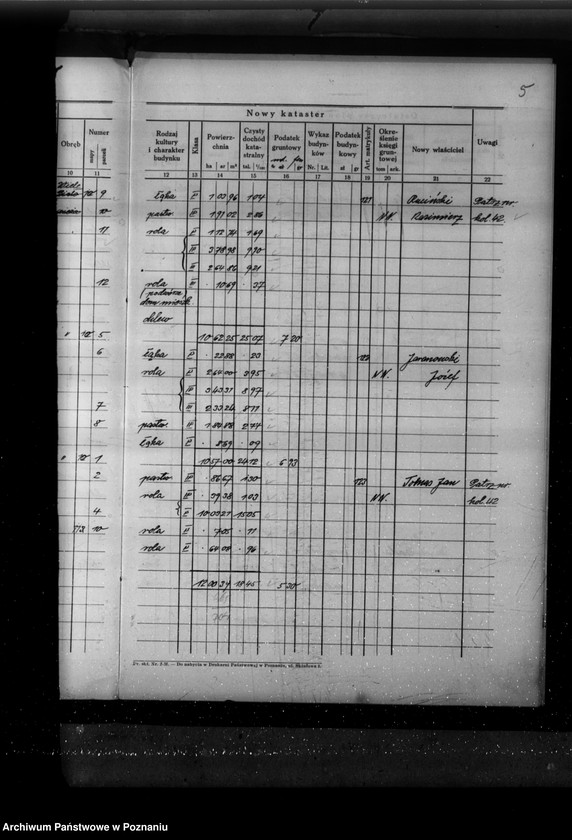 5
Nowy kataster
Obręb
Numer
mapy
parceli
Rodzaj kultury i charakter budynku
Klasa
Powierzchnia
ha ar m²
Czysty dochód katastralny
tal. 1/100
Podatek gruntowy
zł gr
Wykaz budynków
Nr. Lit.
Podatek budynkowy
zł gr
Art. matrykuły
Określenie księgi gruntowej
tom ark.
Nowy właściciel
Uwagi
10 11 12 13 14 15 16 17 18 19 20 21 22
9 łąka 1 03 96 1 04 121 Rusiński
10 pastw 1 91 02 2 86 NN Kazimierz kol 42
11 rola 1 12 74 1 69
3 78 98 9 90
2 64 86 9 21
12 rola 10 69 37
podwórze
dom mieszk
chlew
5 10 62 25 25 07 7 20
6 łąka 23 88 23 122 Jaranowski
rola 2 64 00 3 95 NN. Józef
3 43 31 8 97
7 2 33 24 8 11
8 pastw 1 84 88 2 77
łąka 8 89 09
1 10 57 00 24 12 6 93
2 pastw 86 67 1 30 123 Tomas Jan
rola 39 38 1 03 NN. kol 42
4 10 03 27 15 05
10 rola 7 05 11
rola 64 08 96
12 00 34 18 45 5 30
Do nabycia w Drukarni Państwowej w Poznaniu
Archiwum Państwowe w Poznaniu